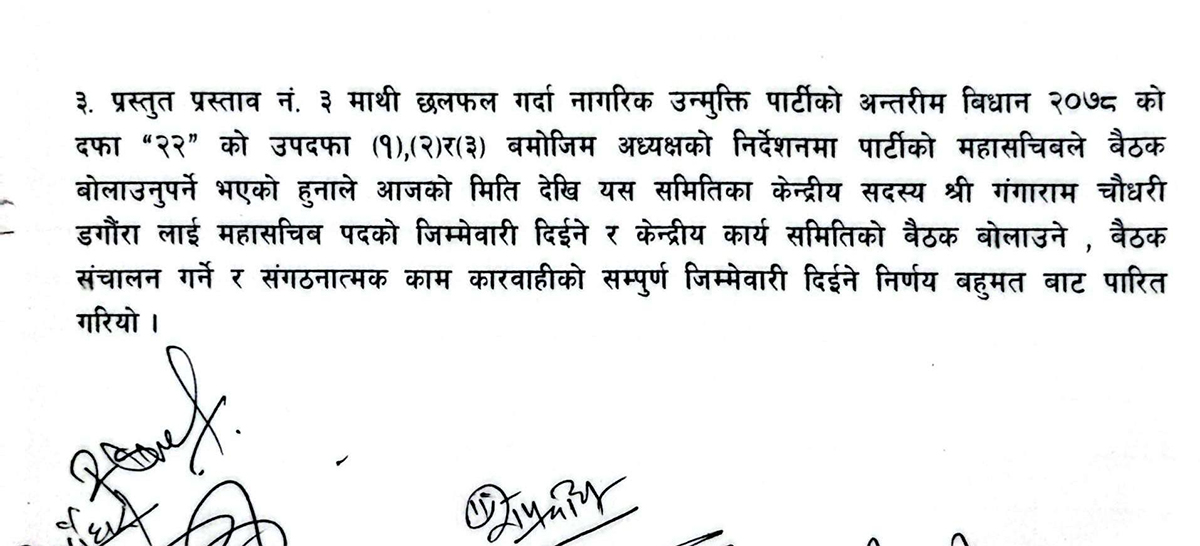 ३. प्रस्तुत प्रस्ताव नं. ३ माथी छलफल गर्दा नागरिक उन्मुक्ति पार्टीको अन्तरीम बिधान २०७८ को
दफा “२२” को उपदफा (१),(२)र(३) बमोजिम अध्यक्षको निर्देशनमा पार्टीको महासचिबले बैठक
बोलाउनुपर्ने भएको हुनाले आजको मिति देखि यस समितिका केन्द्रीय सदस्य श्री गंगाराम चौधरी
डगौंरा लाई महासचिब पदको जिम्मेवारी दिईने र केन्द्रीय कार्य समितिको बैठक बोलाउने , बैठक
संचालन गर्ने र संगठनात्मक काम कारवाहीको सम्पुर्ण जिम्मेवारी दिईने निर्णय बहुमत बाट पारित
गरियो ।